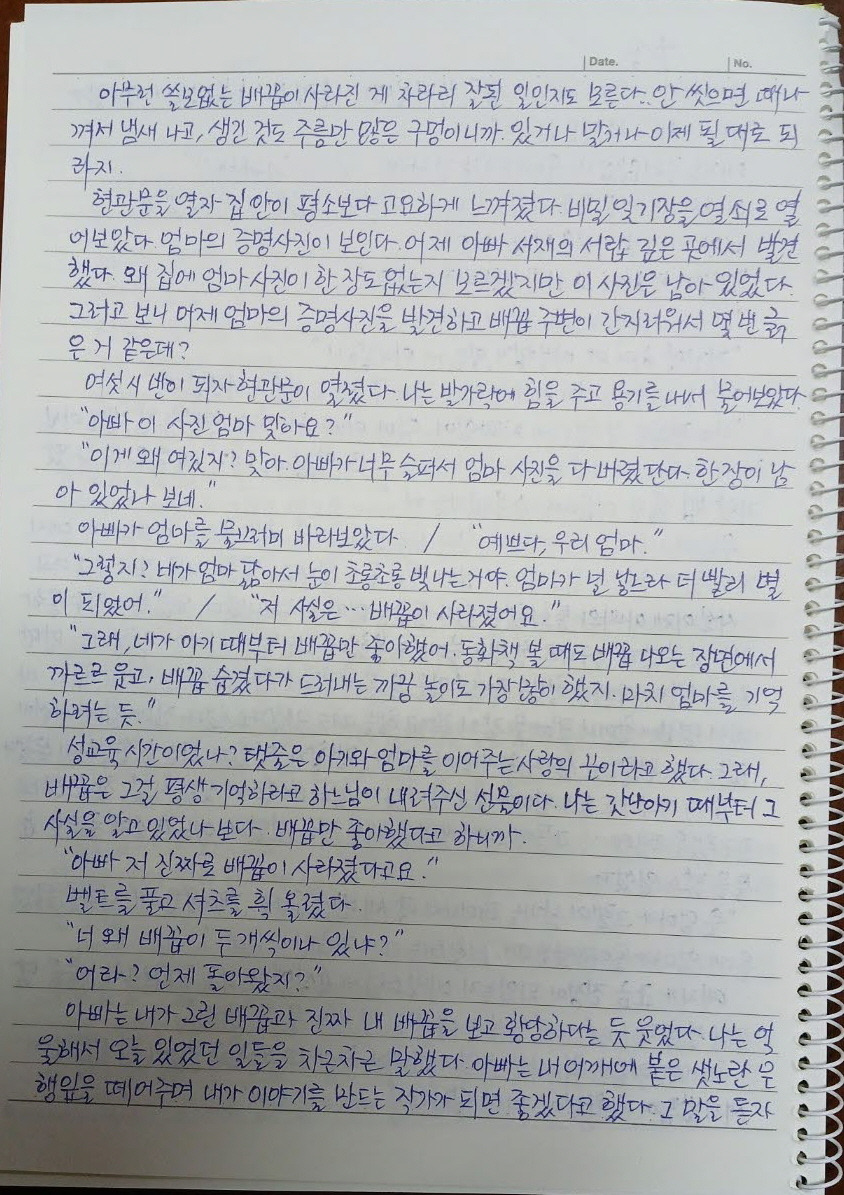 Date. No.
아무런 쓸모없는 배꼽이 사라진 게 차라리 잘된 일인지도 모른다. 안 씻으면 때나
껴서 냄새 나고, 생긴 것도 주름만 많은 구멍이니까. 있거나 말거나 이제 될 대로 되
라지.
현관문을 열자 집 안이 평소보다 고요하게 느껴졌다. 비밀 일기장을 열쇠로 열
어보았다. 엄마의 증명사진이 보인다. 어제 아빠 서재의 서랍 깊은 곳에서 발견
했다. 왜 집에 엄마 사진이 한 장도 없는지 모르겠지만 이 사진은 남아 있었다.
그러고 보니 어제 엄마의 증명사진을 발견하고 배꼽 주변이 간지러워서 몇 번 긁
은 거 같은데?
여섯 시 반이 되자 현관문이 열렸다. 나는 발가락에 힘을 주고 용기를 내서 물어보았다.
"아빠 이 사진 엄마 맞아요?"
"이게 왜 여깄지? 맞아. 아빠가 너무 슬퍼서 엄마 사진을 다 버렸단다. 한 장이 남
아 있었나 보네."
아빠가 엄마를 물끄러미 바라보았다. / "예쁘다, 우리 엄마."
"그렇지? 네가 엄마 닮아서 눈이 초롱초롱 빛나는거야. 엄마가 널 낳느라 더 빨리 별
이 되었어." / "저 사실은… 배꼽이 사라졌어요."
"그래, 네가 아기 때부터 배꼽만 좋아했어. 동화책 볼 때도 배꼽 나오는 장면에서
까르르 웃고, 배꼽 숨겼다가 드러내는 까꿍 놀이도 가장 많이 했지. 마치 엄마를 기억
하려는 듯."
성교육 시간이었나? 탯줄은 아기와 엄마를 이어주는 사랑의 끈이라고 했다. 그래,
배꼽은 그걸 평생 기억하라고 하느님이 내려주신 선물이다. 나는 갓난아기 때부터 그
사실을 알고 있었나 보다. 배꼽만 좋아했다고 하니까.
"아빠 저 진짜로 배꼽이 사라졌다고요."
벨트를 풀고 셔츠를 휙 올렸다.
"너 왜 배꼽이 두 개씩이나 있냐?"
"어라? 언제 돌아왔지?"
아빠는 내가 그린 배꼽과 진짜 내 배꼽을 보고 황당하다는 듯 웃었다. 나는 억
울해서 오늘 있었던 일들을 차근차근 말했다. 아빠는 내 어깨에 붙은 샛노란 은
행잎을 떼어주며 내가 이야기를 만드는 작가가 되면 좋겠다고 했다. 그 말을 듣자